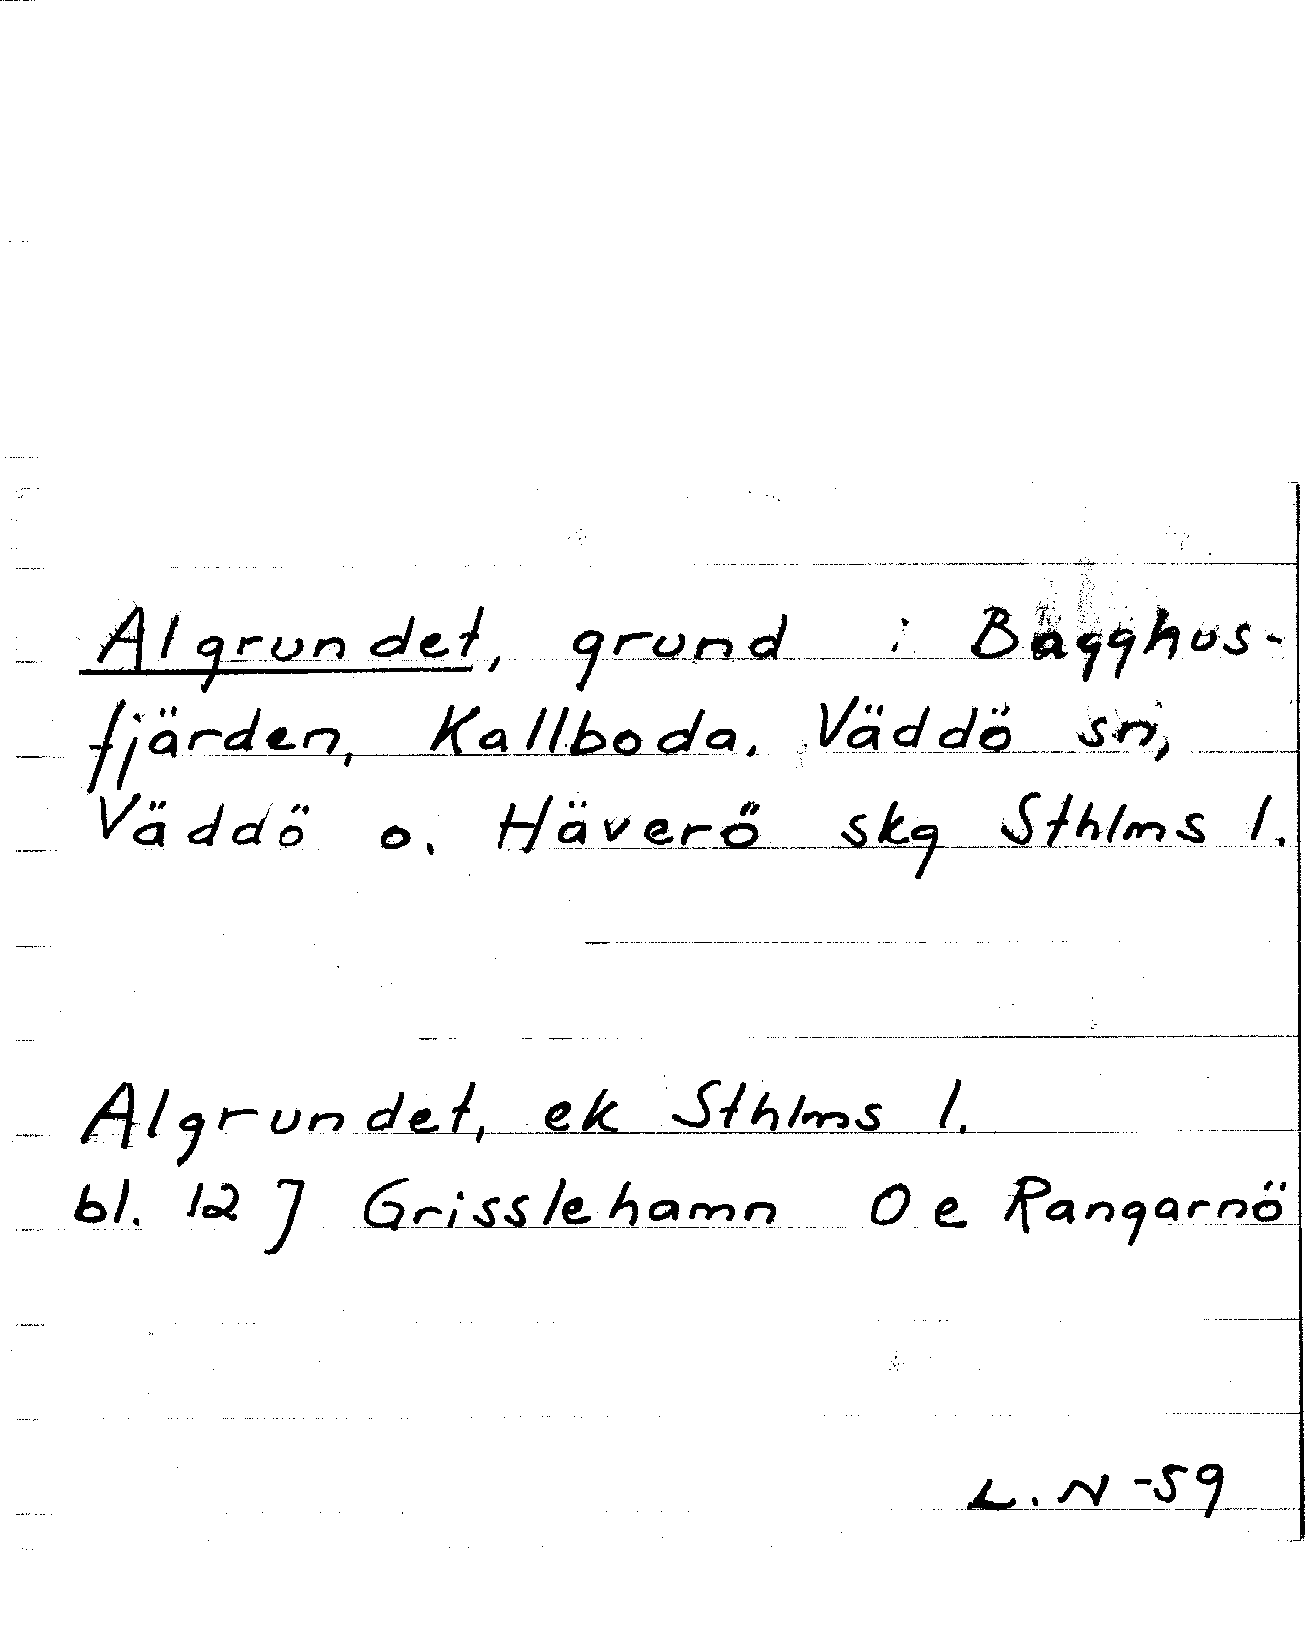 Algrundet, grund i Bagghus-
fjärden, Kallboda. Väddö sn,
Väddö o. Häverö skg Sthlms l.
Algrundet, ek Sthlms l.
bl. 12 J Grisslehamn O e Rangarnö
L. N -59